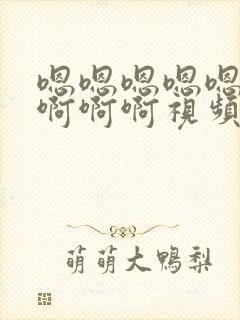 嗯嗯嗯嗯嗯
啊啊啊視頻
萌萌大鴨梨